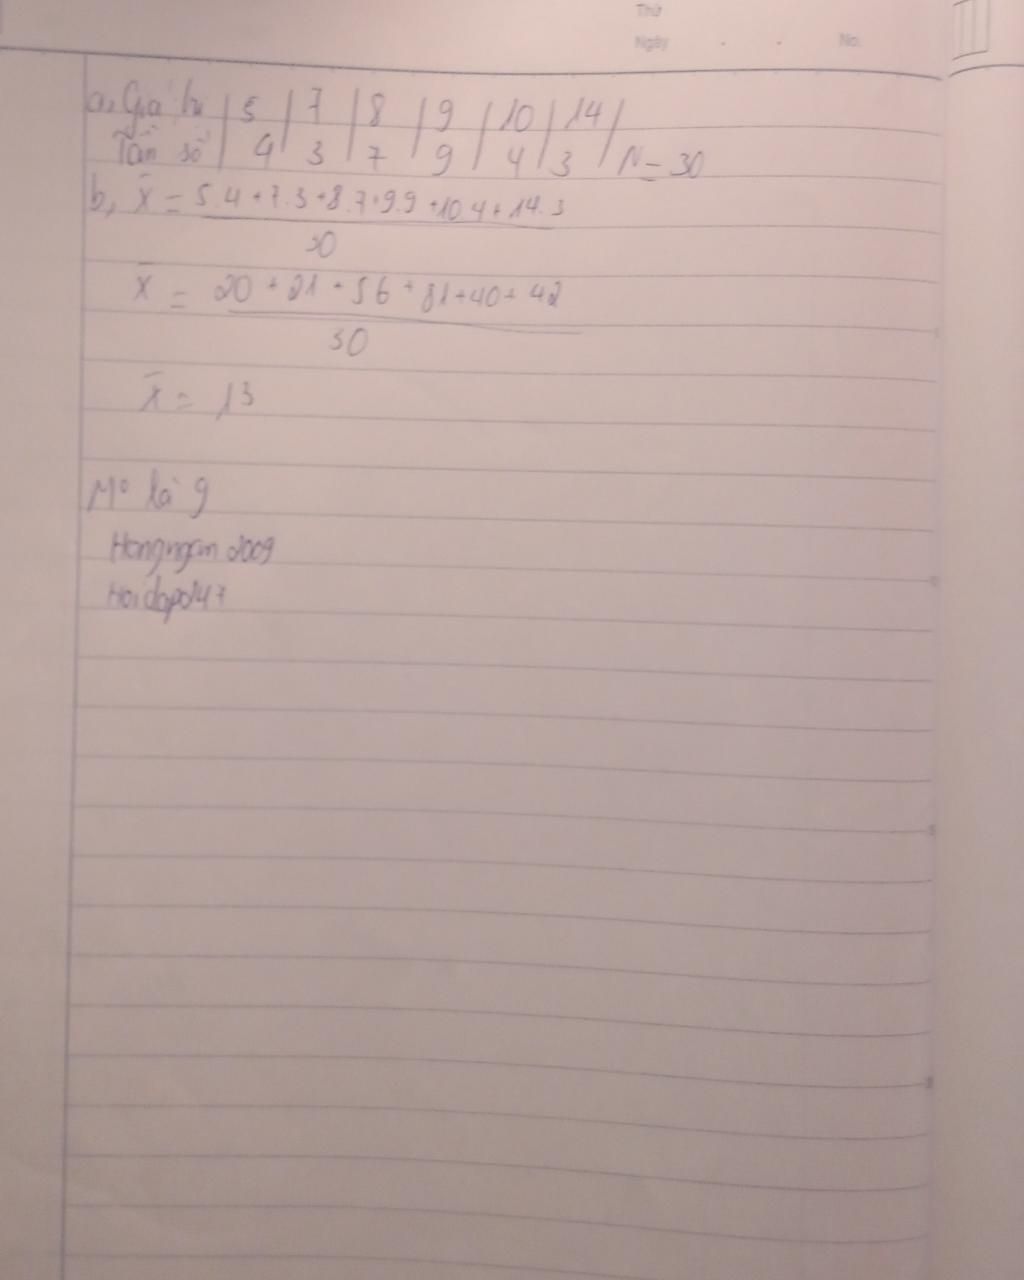 Thứ
Ngày . . No.
a, Giá trị | 5 | 7 | 8 | 9 | 10 | 14 |
Tần số | 4 | 3 | 7 | 9 | 4 | 3 | N = 30
b, x̄ = 5.4 + 7.3 + 8.7 + 9.9 + 10.4 + 14.3
30
x̄ = 20 + 21 + 56 + 81 + 40 + 42
30
x̄ = 13
M° là 9
Hongngan 2009
Hoidap247